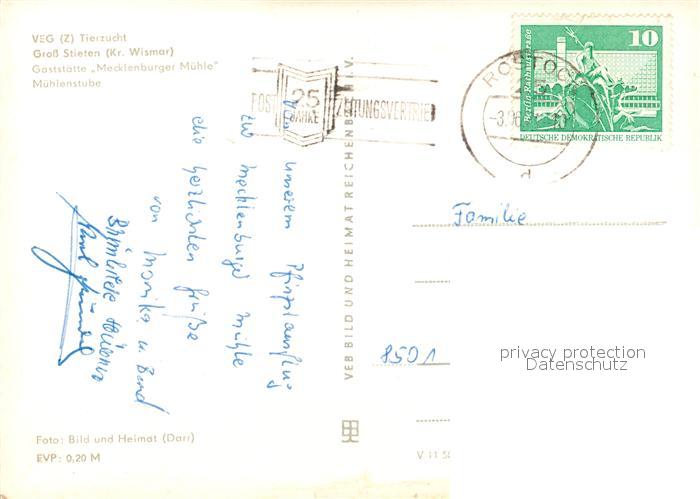 VEG (Z) Tierzucht
Groß Stieten (Kr. Wismar)
Gaststätte „Mecklenburger Mühle"
Mühlenstube
POST
25
JAHRE
ZEITUNGSVERTRIEB
ROSTOCK
d
10
Berlin-Rathausstraße
DEUTSCHE DEMOKRATISCHE REPUBLIK
Von
unserem Pfingstausflug
zur Mecklenburger Mühle
die herzlichsten Grüße
von Monika u. Bernd
VEB BILD UND HEIMAT REICHENBACH I. V.
Familie
8501
privacy protection
Datenschutz
Foto: Bild und Heimat (Darr)
EVP: 0,20 M
V 11 50